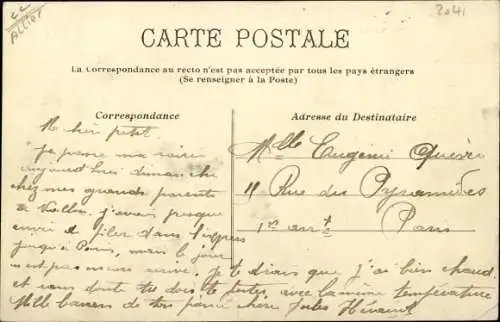 Allier
2041
CARTE POSTALE
La Correspondance au recto n'est pas acceptée par tous les pays étrangers
(Se renseigner à la Poste)
Correspondance
Adresse du Destinataire
petit
Je passe ma soirée
aujourd'hui dimanche
chez mes grands parents
à Vallon. j'avais presque
envie de filer dans l'express
jusqu'à Paris, mais le jour
n'est pas encore arrivé. Je te dirais que j'ai bien chaud
et sans doute tu dois te porter, avec la même température
Mille baisers de ton
Jules
Melle Eugénie
11 Rue des Pyramides
1er arrt
Paris